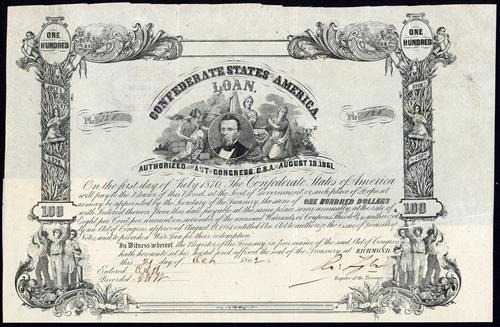 ONE HUNDRED
ONE HUNDRED
CONFEDERATE STATES OF AMERICA.
LOAN.
No 128
No 128
AUTHORIZED BY ACT OF CONGRESS, C.S.A. OF AUGUST 19, 1861.
On the first day of July 1870, The Confederate States of America
will pay to the Bearer of this Bond, at the Seat of Government or such place of Deposit
as may be appointed by the Secretary of the Treasury, the sum of ONE HUNDRED DOLLARS
with Interest thereon from this date, payable at the same place semi-annually, at the rate of
Eight per Cent per annum on surrender of the annexed Warrants or Coupons. This debt is authorized by
an Act of Congress approved August 19, 1861, entitled An Act to authorize the issue of Treasury
Notes and to provide a War Tax for their redemption.
In Witness whereof, the Register of the Treasury, in pursuance of the said Act of Congress
hath hereunto set his hand and affixed the seal of the Treasury at RICHMOND.
this 21 day of Oct 1862
100
100
Entered
Recorded
Register of the Treasury